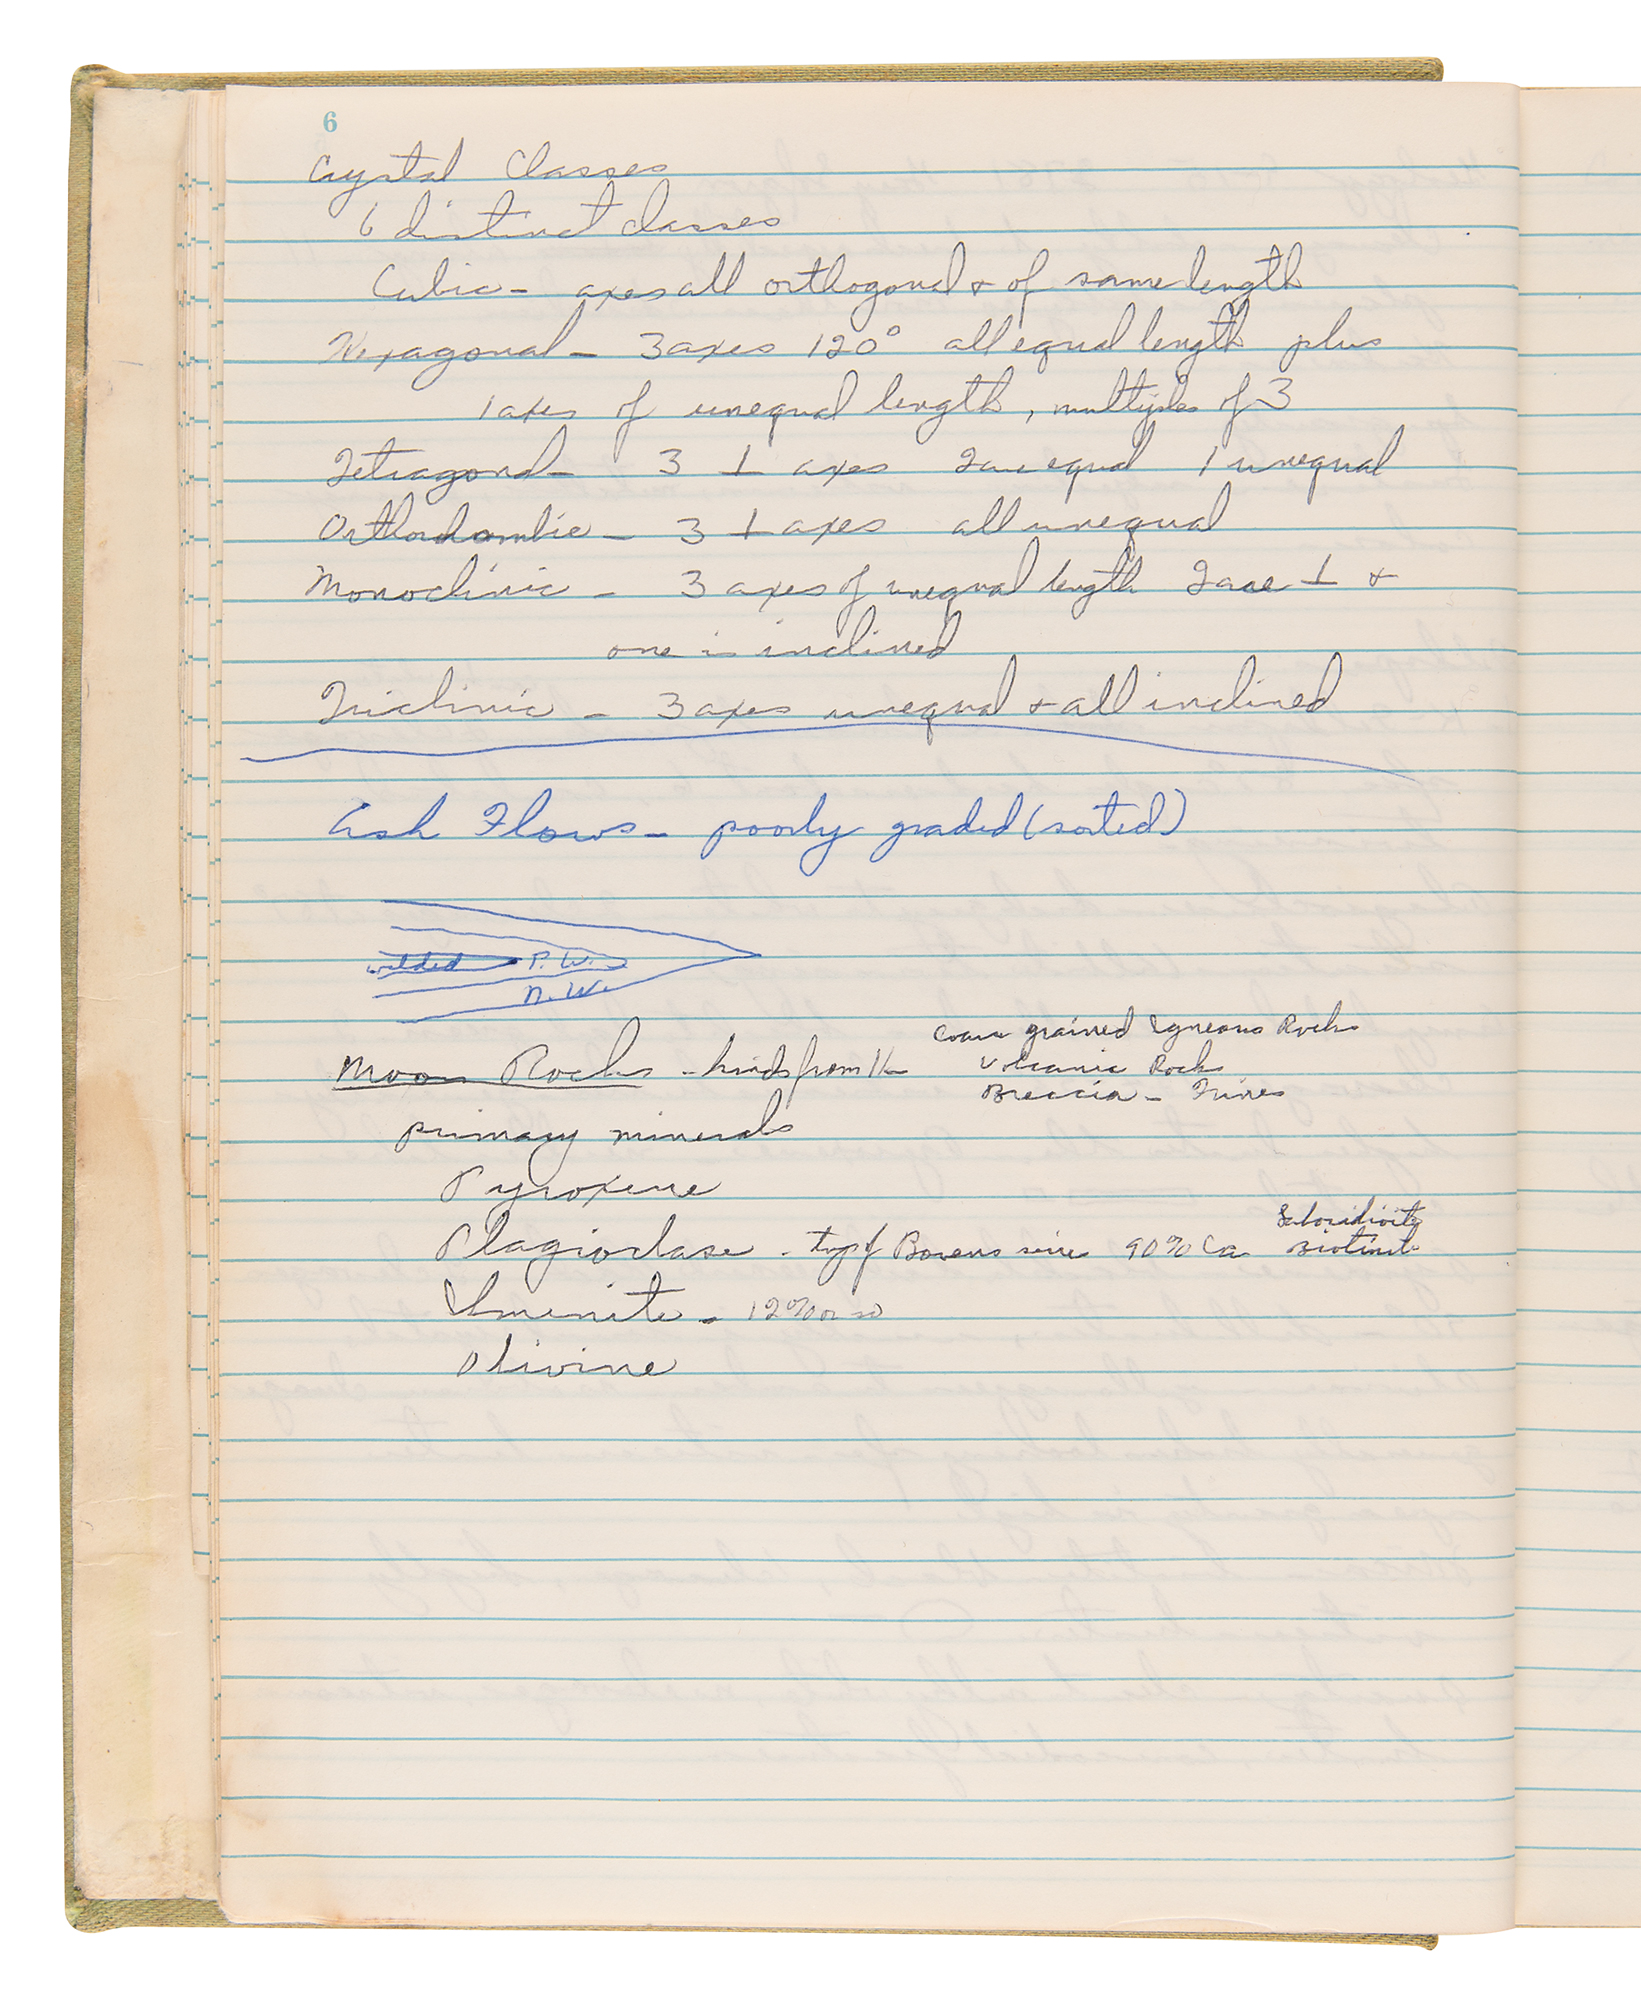 6
Crystal Classes
6 distinct classes
Cubic - axes all orthogonal & of same length
Hexagonal - 3 axes 120° all equal length plus
1 axes of unequal length, multiples of 3
Tetragonal - 3 ⊥ axes 2 are equal 1 unequal
Orthorhombic - 3 ⊥ axes all unequal
Monoclinic - 3 axes of unequal length 2 are ⊥ &
one is inclined
Triclinic - 3 axes unequal & all inclined
Ash Flows - poorly graded (sorted)
welded P.W.
N.W.
Coarse grained Igneous Rocks
Moon Rocks - kinds from 11 Volcanic Rocks
Breccia - Fines
primary minerals
Pyroxene
Plagioclase - top of Bowens series 90% Ca
Ilmenite - 12% or so
Olivine